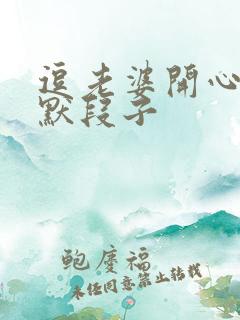 逗老婆開心
默段子
鲍慶福
未经同意禁止转载